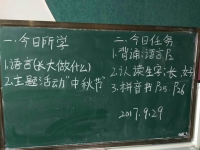 一.今日所学
1.语言《长大做什么》
2.主题活动"中秋节"
二.今日任务
1.背诵语言P2
2.认读生字:长 好
3.拼音书P25 P26
2017.9.29